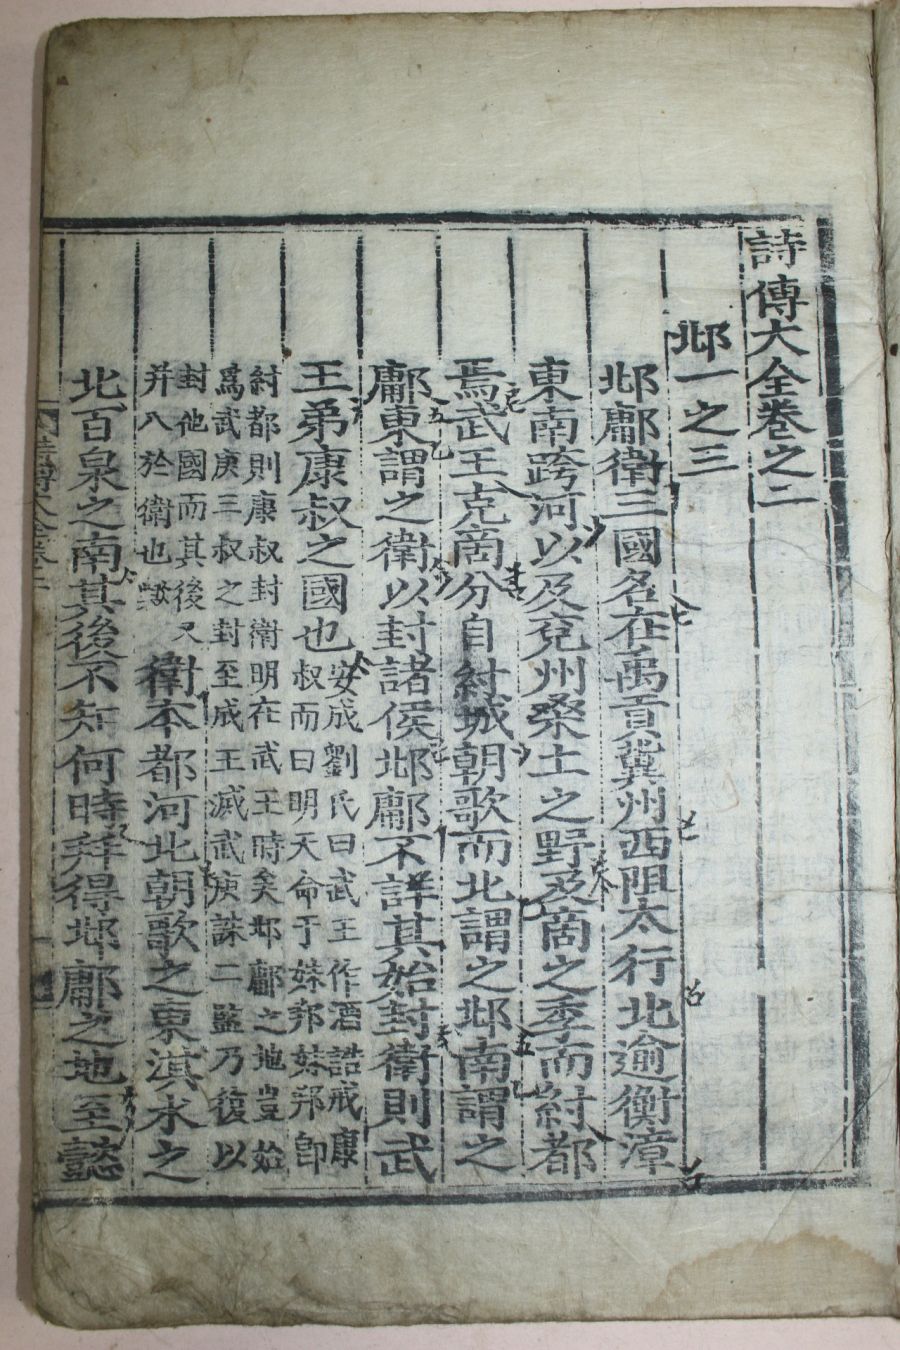 詩傳大全卷之二
邶一之三
邶鄘衛三國名在禹貢冀州西阻太行北逾衡漳
東南跨河以及兗州桑土之野及商之季而紂都
焉武王克商分自紂城朝歌而北謂之邶南謂之
鄘東謂之衛以封諸侯邶鄘不詳其始封衛則武
王弟康叔之國也
安成劉氏曰武王作酒誥戒康
叔而曰明天命于妹邦妹邦卽
紂都則康叔封衛明在武王時矣邶鄘之地豈始
爲武庚三叔之封至成王滅武庚誅二監乃復以
封他國而其後又
并入於衛也歟
衛本都河北朝歌之東淇水之
北百泉之南其後不知何時幷得邶鄘之地至懿